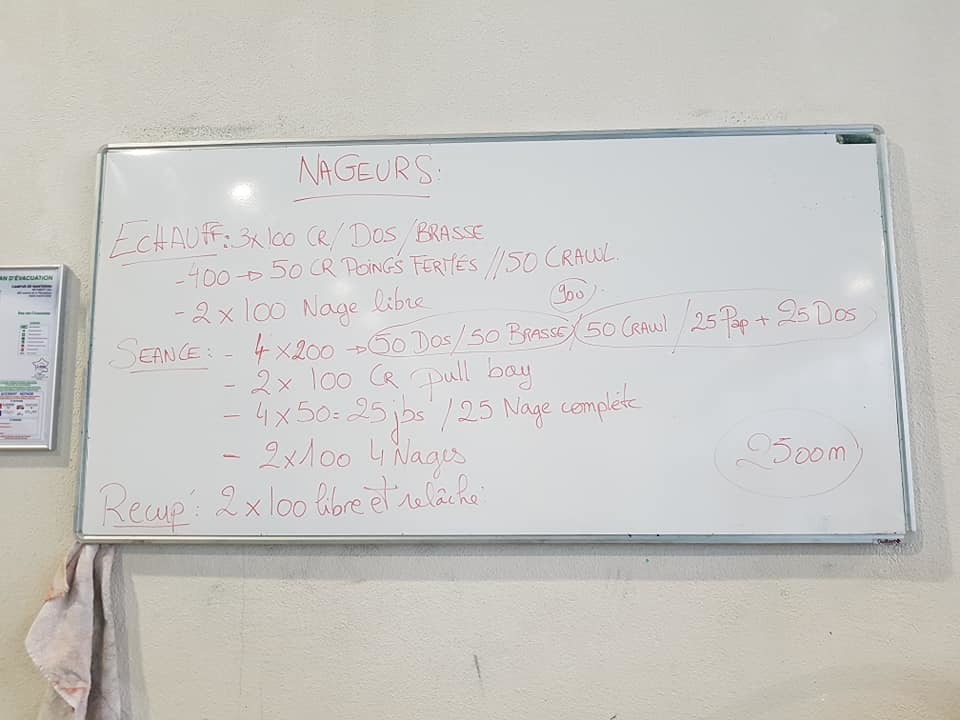 NAGEURS:
ECHAUFF: 3x100 CR/ DOS/BRASSE
- 400 → 50 CR POINGS FERMÉS // 50 CRAWL.
- 2 x 100 Nage libre
900
SEANCE: - 4 x 200 → 50 DOS/50 BRASSE/50 CRAWL / 25 Pap + 25 DOS
- 2 x 100 CR pull boy
- 4 x 50 = 25 jbs / 25 Nage complète
- 2x100 4 Nages
2500m
Recup: 2 x 100 libre et relâché
AN D'ÉVACUATION